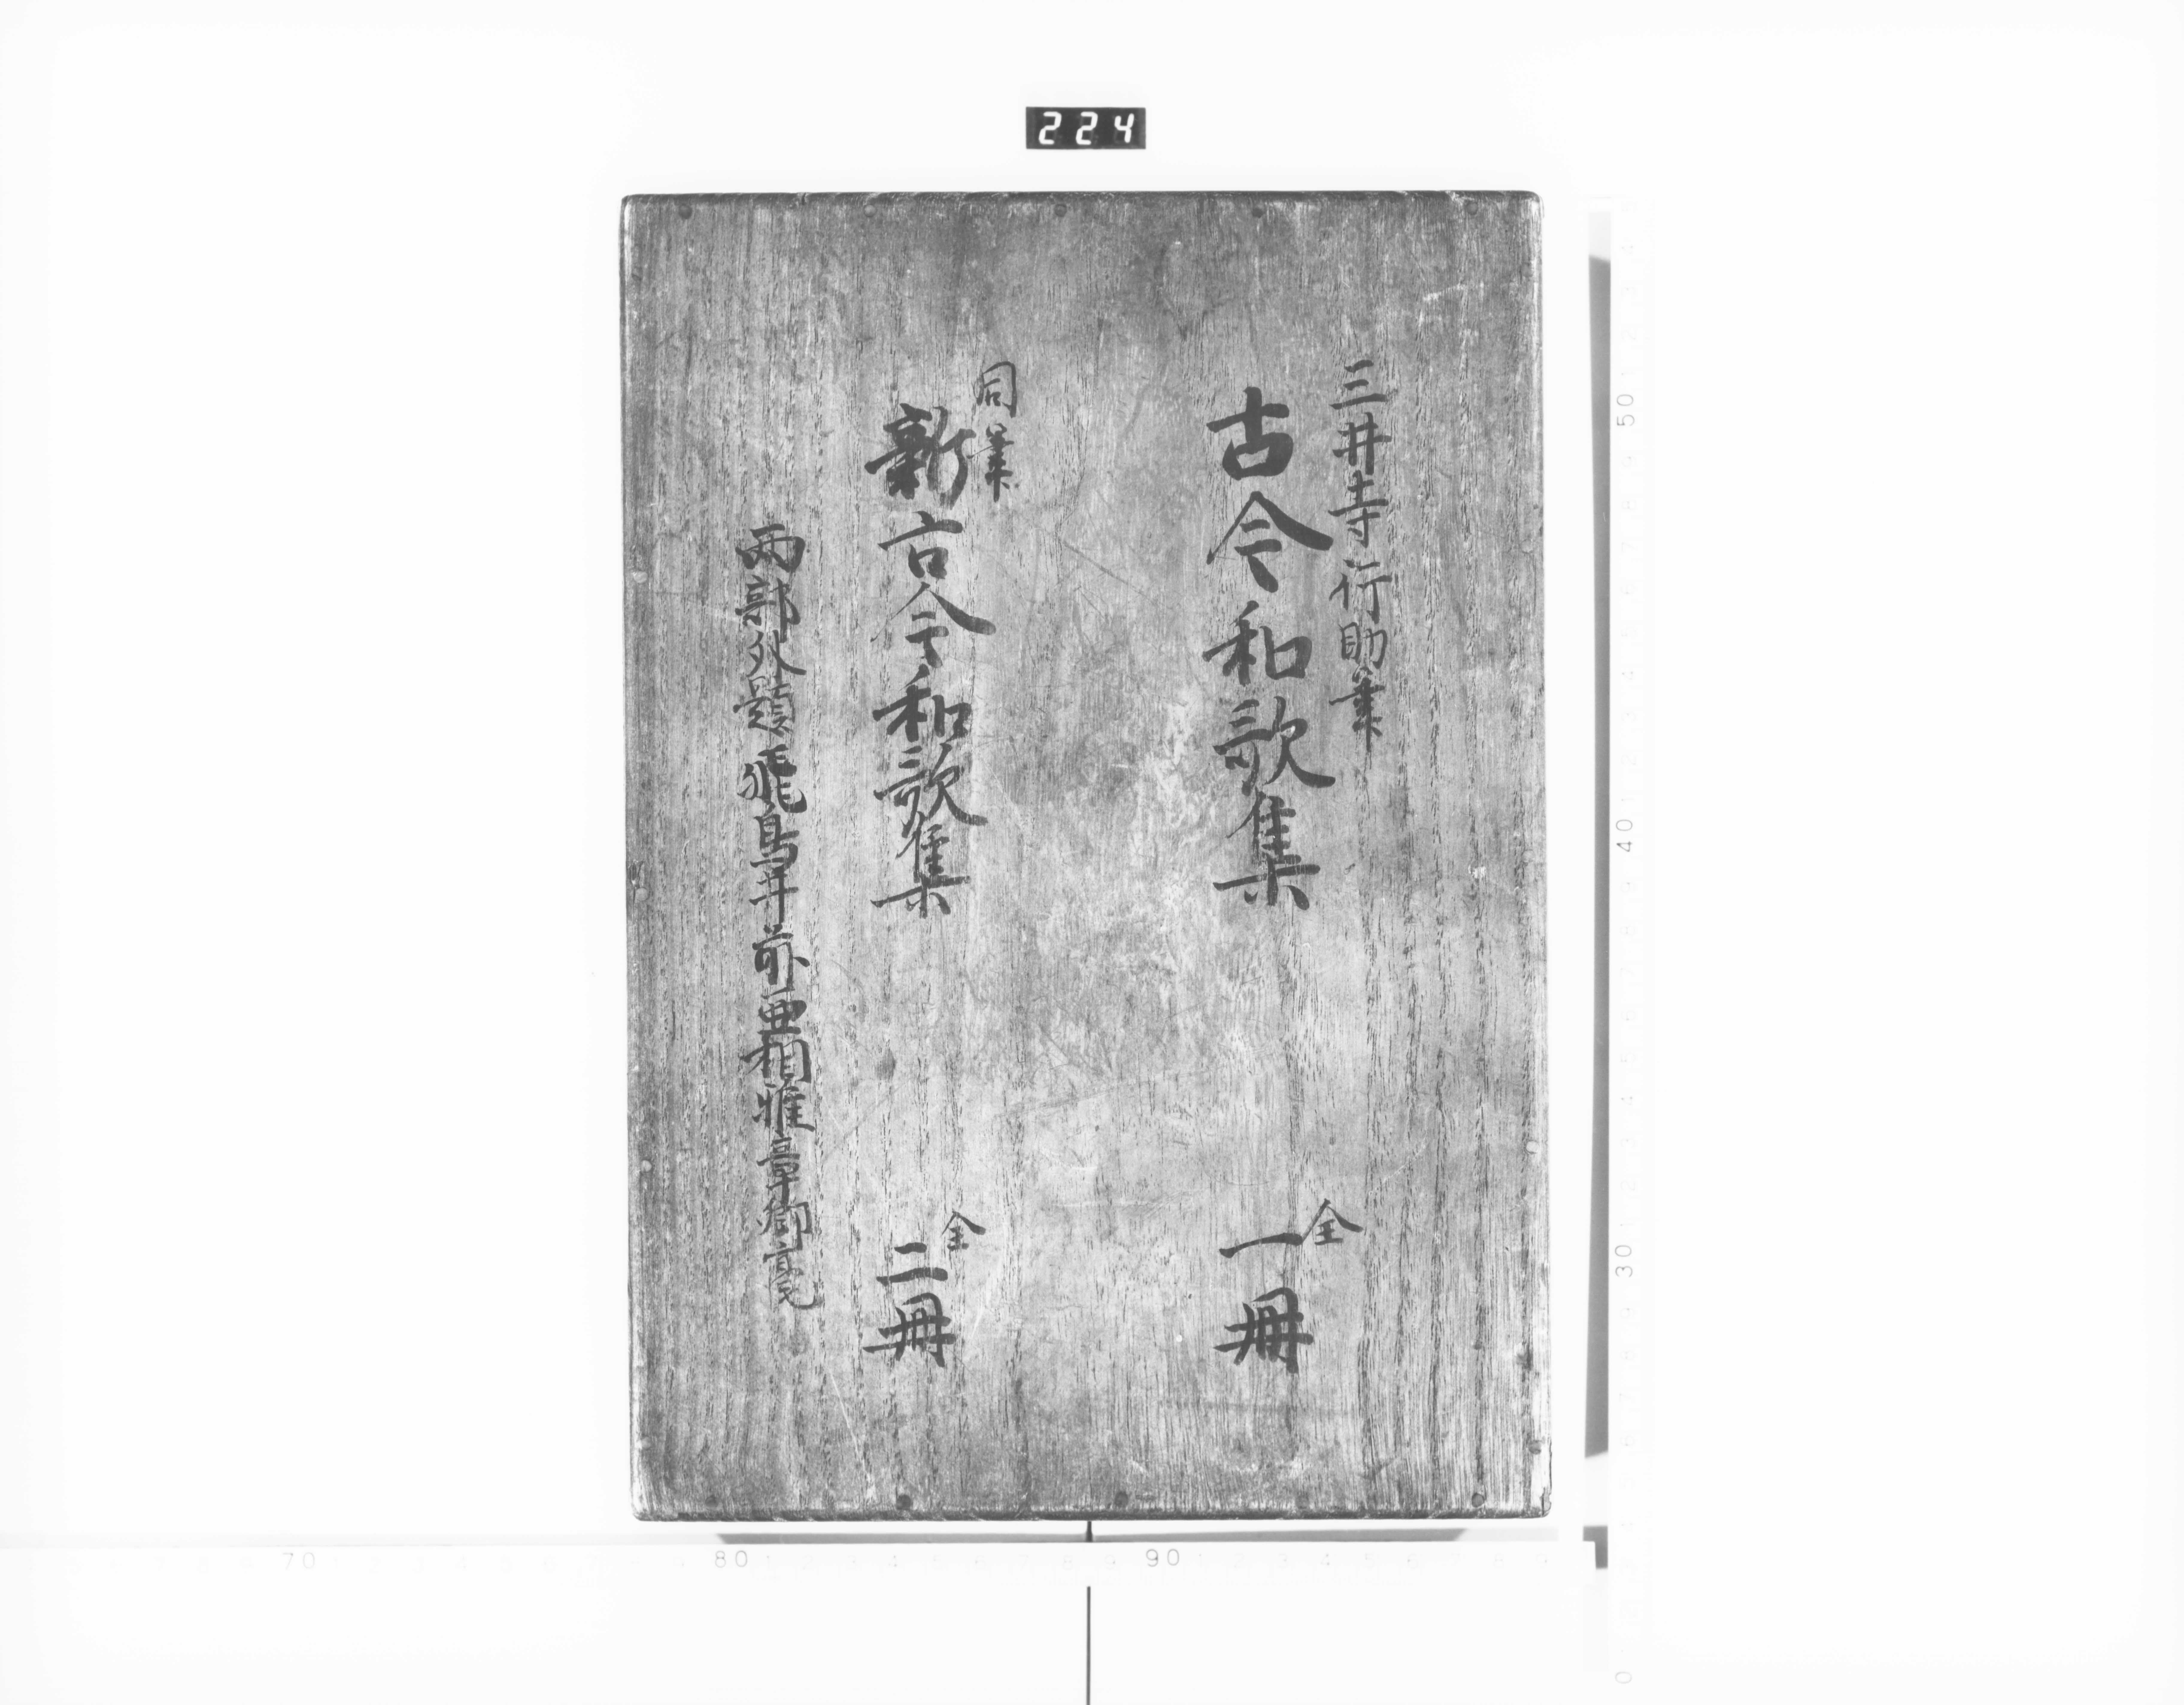 224
三井寺行助筆
古今和歌集
全
一冊
同筆
新古今和歌集
全
二冊
両部外題飛鳥井前亜相雅章卿毫
50
40
30
70
80
90
0